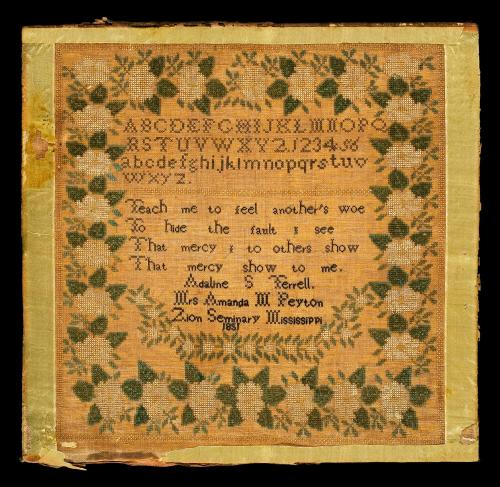 ABCDEFGHIJKLMNOPQ
RSTUVWXYZ123456
abcdefghijklmnopqrstuv
wxyz.
Teach me to feel another's woe
To hide the fault I see
That mercy I to others show
That mercy show to me.
Adaline S Terrell.
Mrs Amanda M Peyton
Zion Seminary Mississippi
1851